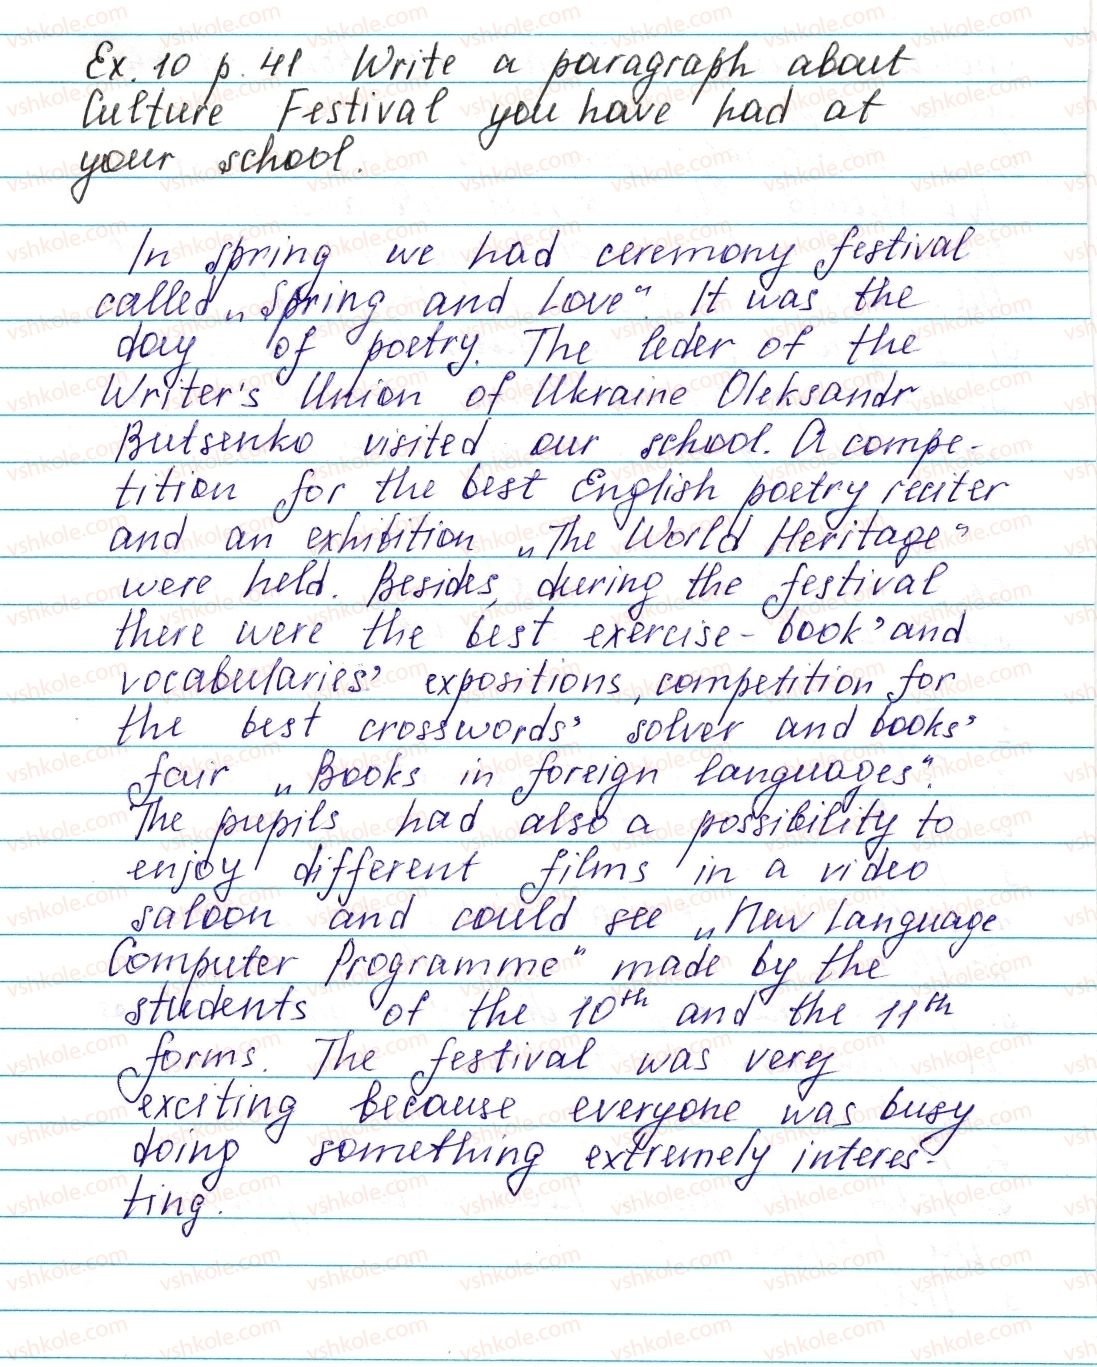 Ex. 10 p. 41 Write a paragraph about
Culture Festival you have had at
your school.
In spring we had ceremony festival
called „Spring and Love“. It was the
day of poetry. The leder of the
Writer's Union of Ukraine Oleksandr
Butsenko visited our school. A compe-
tition for the best English poetry reciter
and an exhibition „The World Heritage“
were held. Besides, during the festival
there were the best exercise-book' and
vocabularies' expositions, competition for
the best crosswords' solver and books'
fair „Books in foreign languages“.
The pupils had also a possibility to
enjoy different films in a video
saloon and could see „New Language
Computer Programme“ made by the
students of the 10th and the 11th
forms. The festival was very
exciting because everyone was busy
doing something extremely interes-
ting.